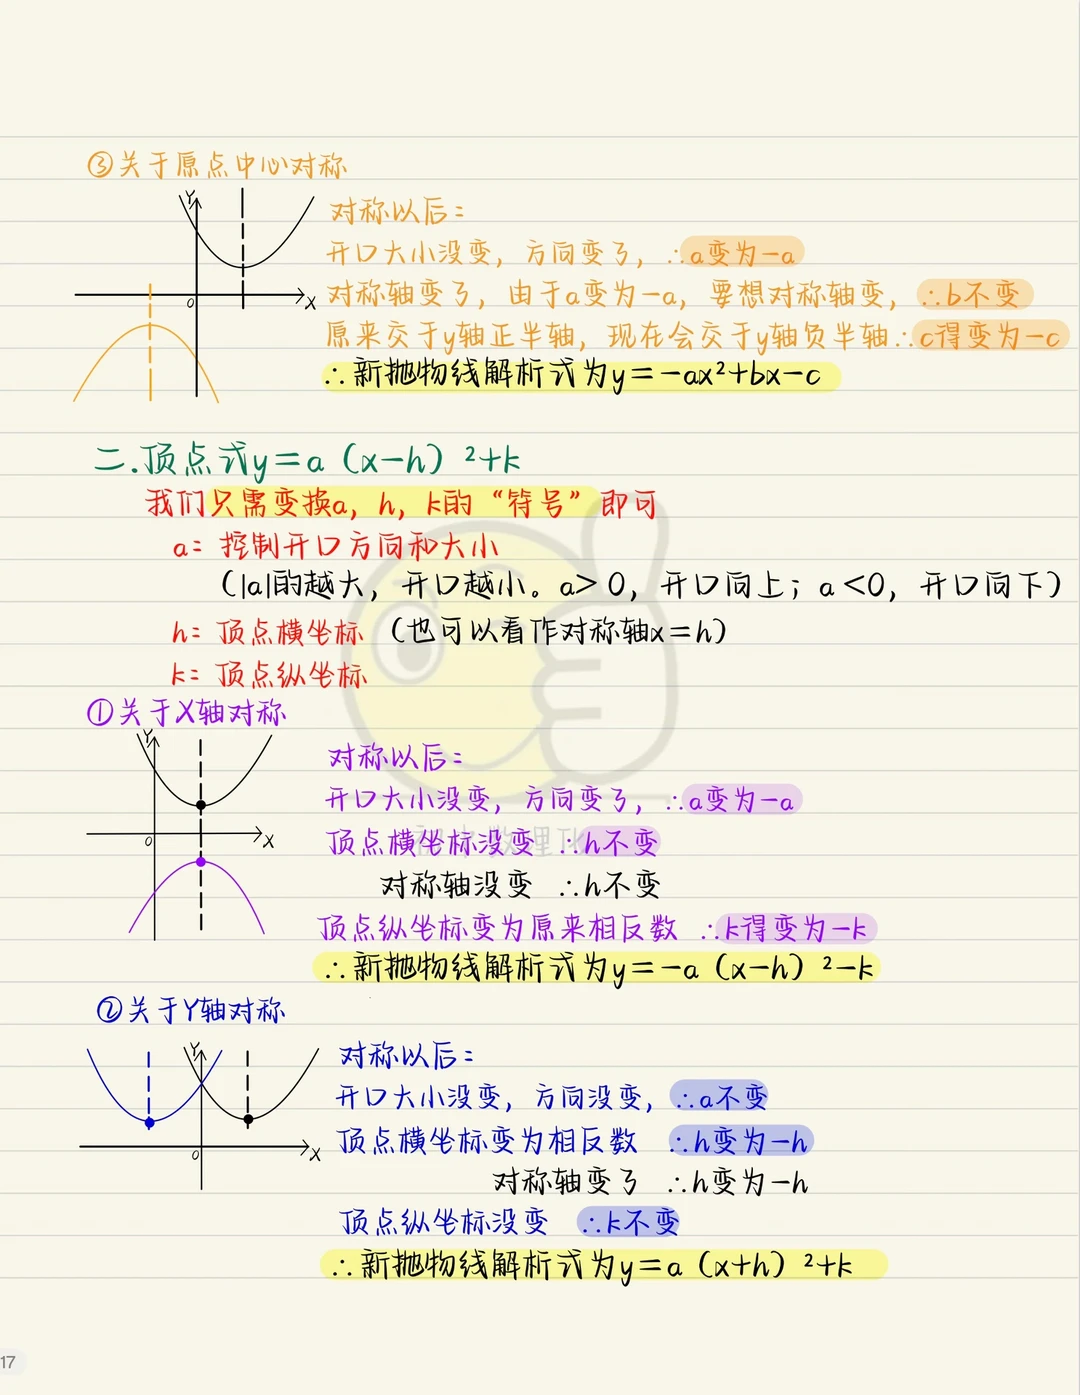 ③关于原点中心对称
Y
O
X
对称以后：
开口大小没变，方向变了，∴a变为-a
对称轴变了，由于a变为-a，要想对称轴变，∴b不变
原来交于y轴正半轴，现在会交于y轴负半轴∴c得变为-c
∴新抛物线解析式为y=-ax²+bx-c
二.顶点式y=a（x-h）²+k
我们只需变换a，h，k的“符号”即可
a：控制开口方向和大小
（|a|的越大，开口越小。a>0，开口向上；a<0，开口向下）
h：顶点横坐标（也可以看作对称轴x=h）
k：顶点纵坐标
①关于X轴对称
Y
O
X
对称以后：
开口大小没变，方向变了，∴a变为-a
顶点横坐标没变 ∴h不变
对称轴没变 ∴h不变
顶点纵坐标变为原来相反数 ∴k得变为-k
∴新抛物线解析式为y=-a（x-h）²-k
②关于Y轴对称
Y
O
X
对称以后：
开口大小没变，方向没变，∴a不变
顶点横坐标变为相反数 ∴h变为-h
对称轴变了 ∴h变为-h
顶点纵坐标没变 ∴k不变
∴新抛物线解析式为y=a（x+h）²+k
17